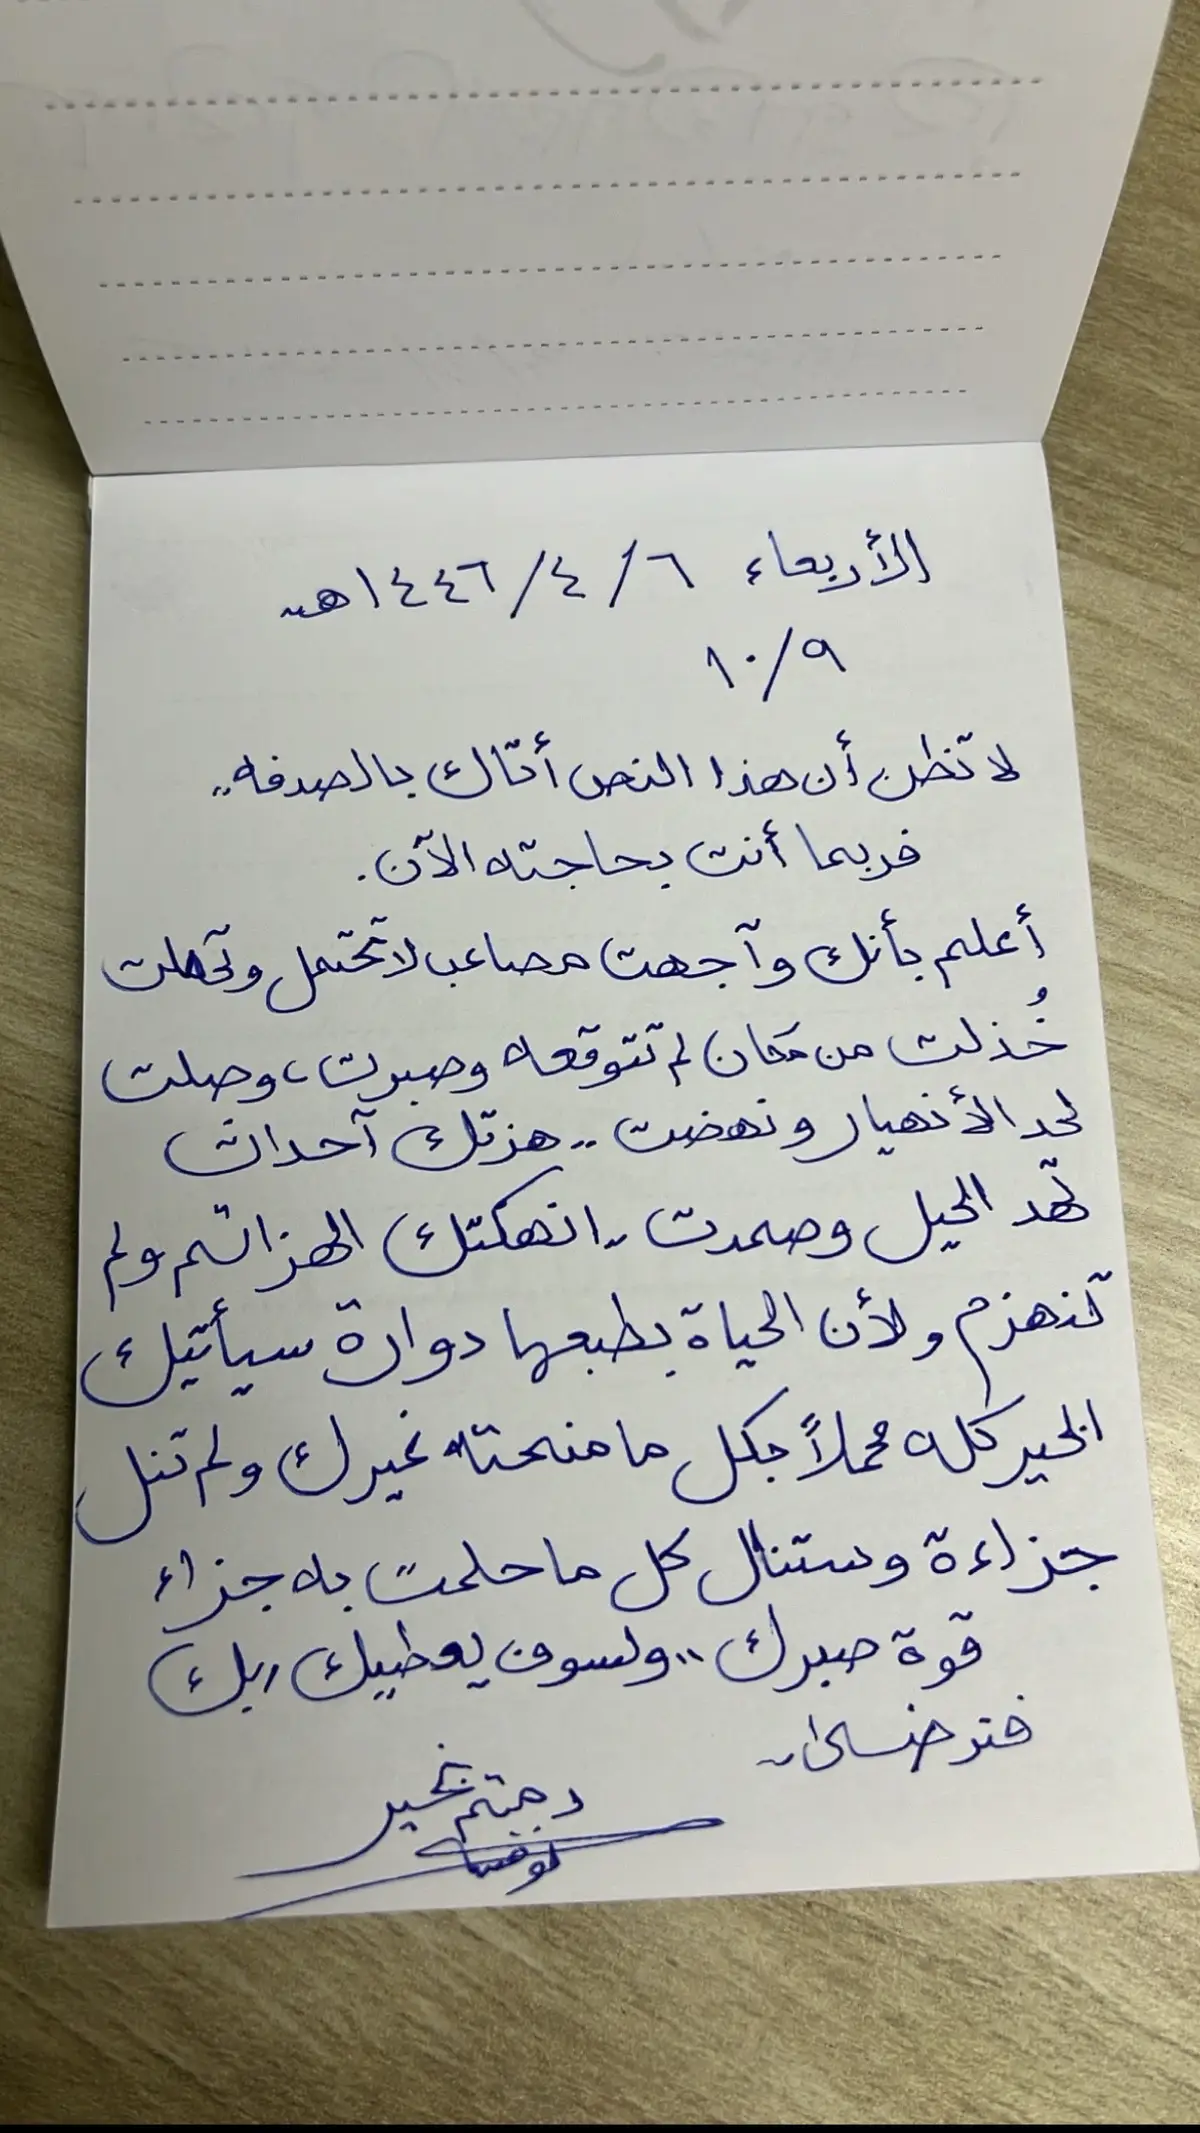 الأربعاء ٦/٤/١٤٤٦هـ
١٠/٩
لا تظن أن هذا النص أتاك بالصدفه..
فربما أنت بحاجته الآن.
أعلم بأنك وآجهت مصاعب لا تحتمل وتحملت
خُذلت من مكان لم تتوقعه وصبرت، وصلت
لحد الأنهيار ونهضت .. هزتك آحداث
تهد الحيل وصمدت .. انهكتك الهزائم ولم
تنهزم ولأن الحياة بطبعها دوارة سيأتيك
الخير كله محملاً بكل ما منحته غيرك ولم تنل
جزاءة وستنال كل ما حلمت به جزاء
قوة صبرك .. ولسوف يعطيك ربك
فترضى
دمتم بخير